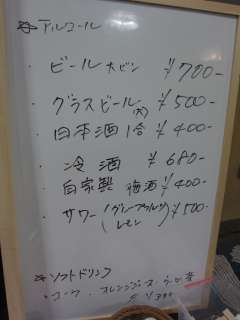 ☆アルコール
・ビール 大ビン ¥700-
・グラスビール(大) ¥500-
・日本酒1合 ¥400-
・冷酒 ¥680-
・自家製 梅酒 ¥400-
・サワー(グレープフルーツ ¥500-
レモン)
☆ソフトドリンク
・コーク ・オレンジジュース・ウーロン茶